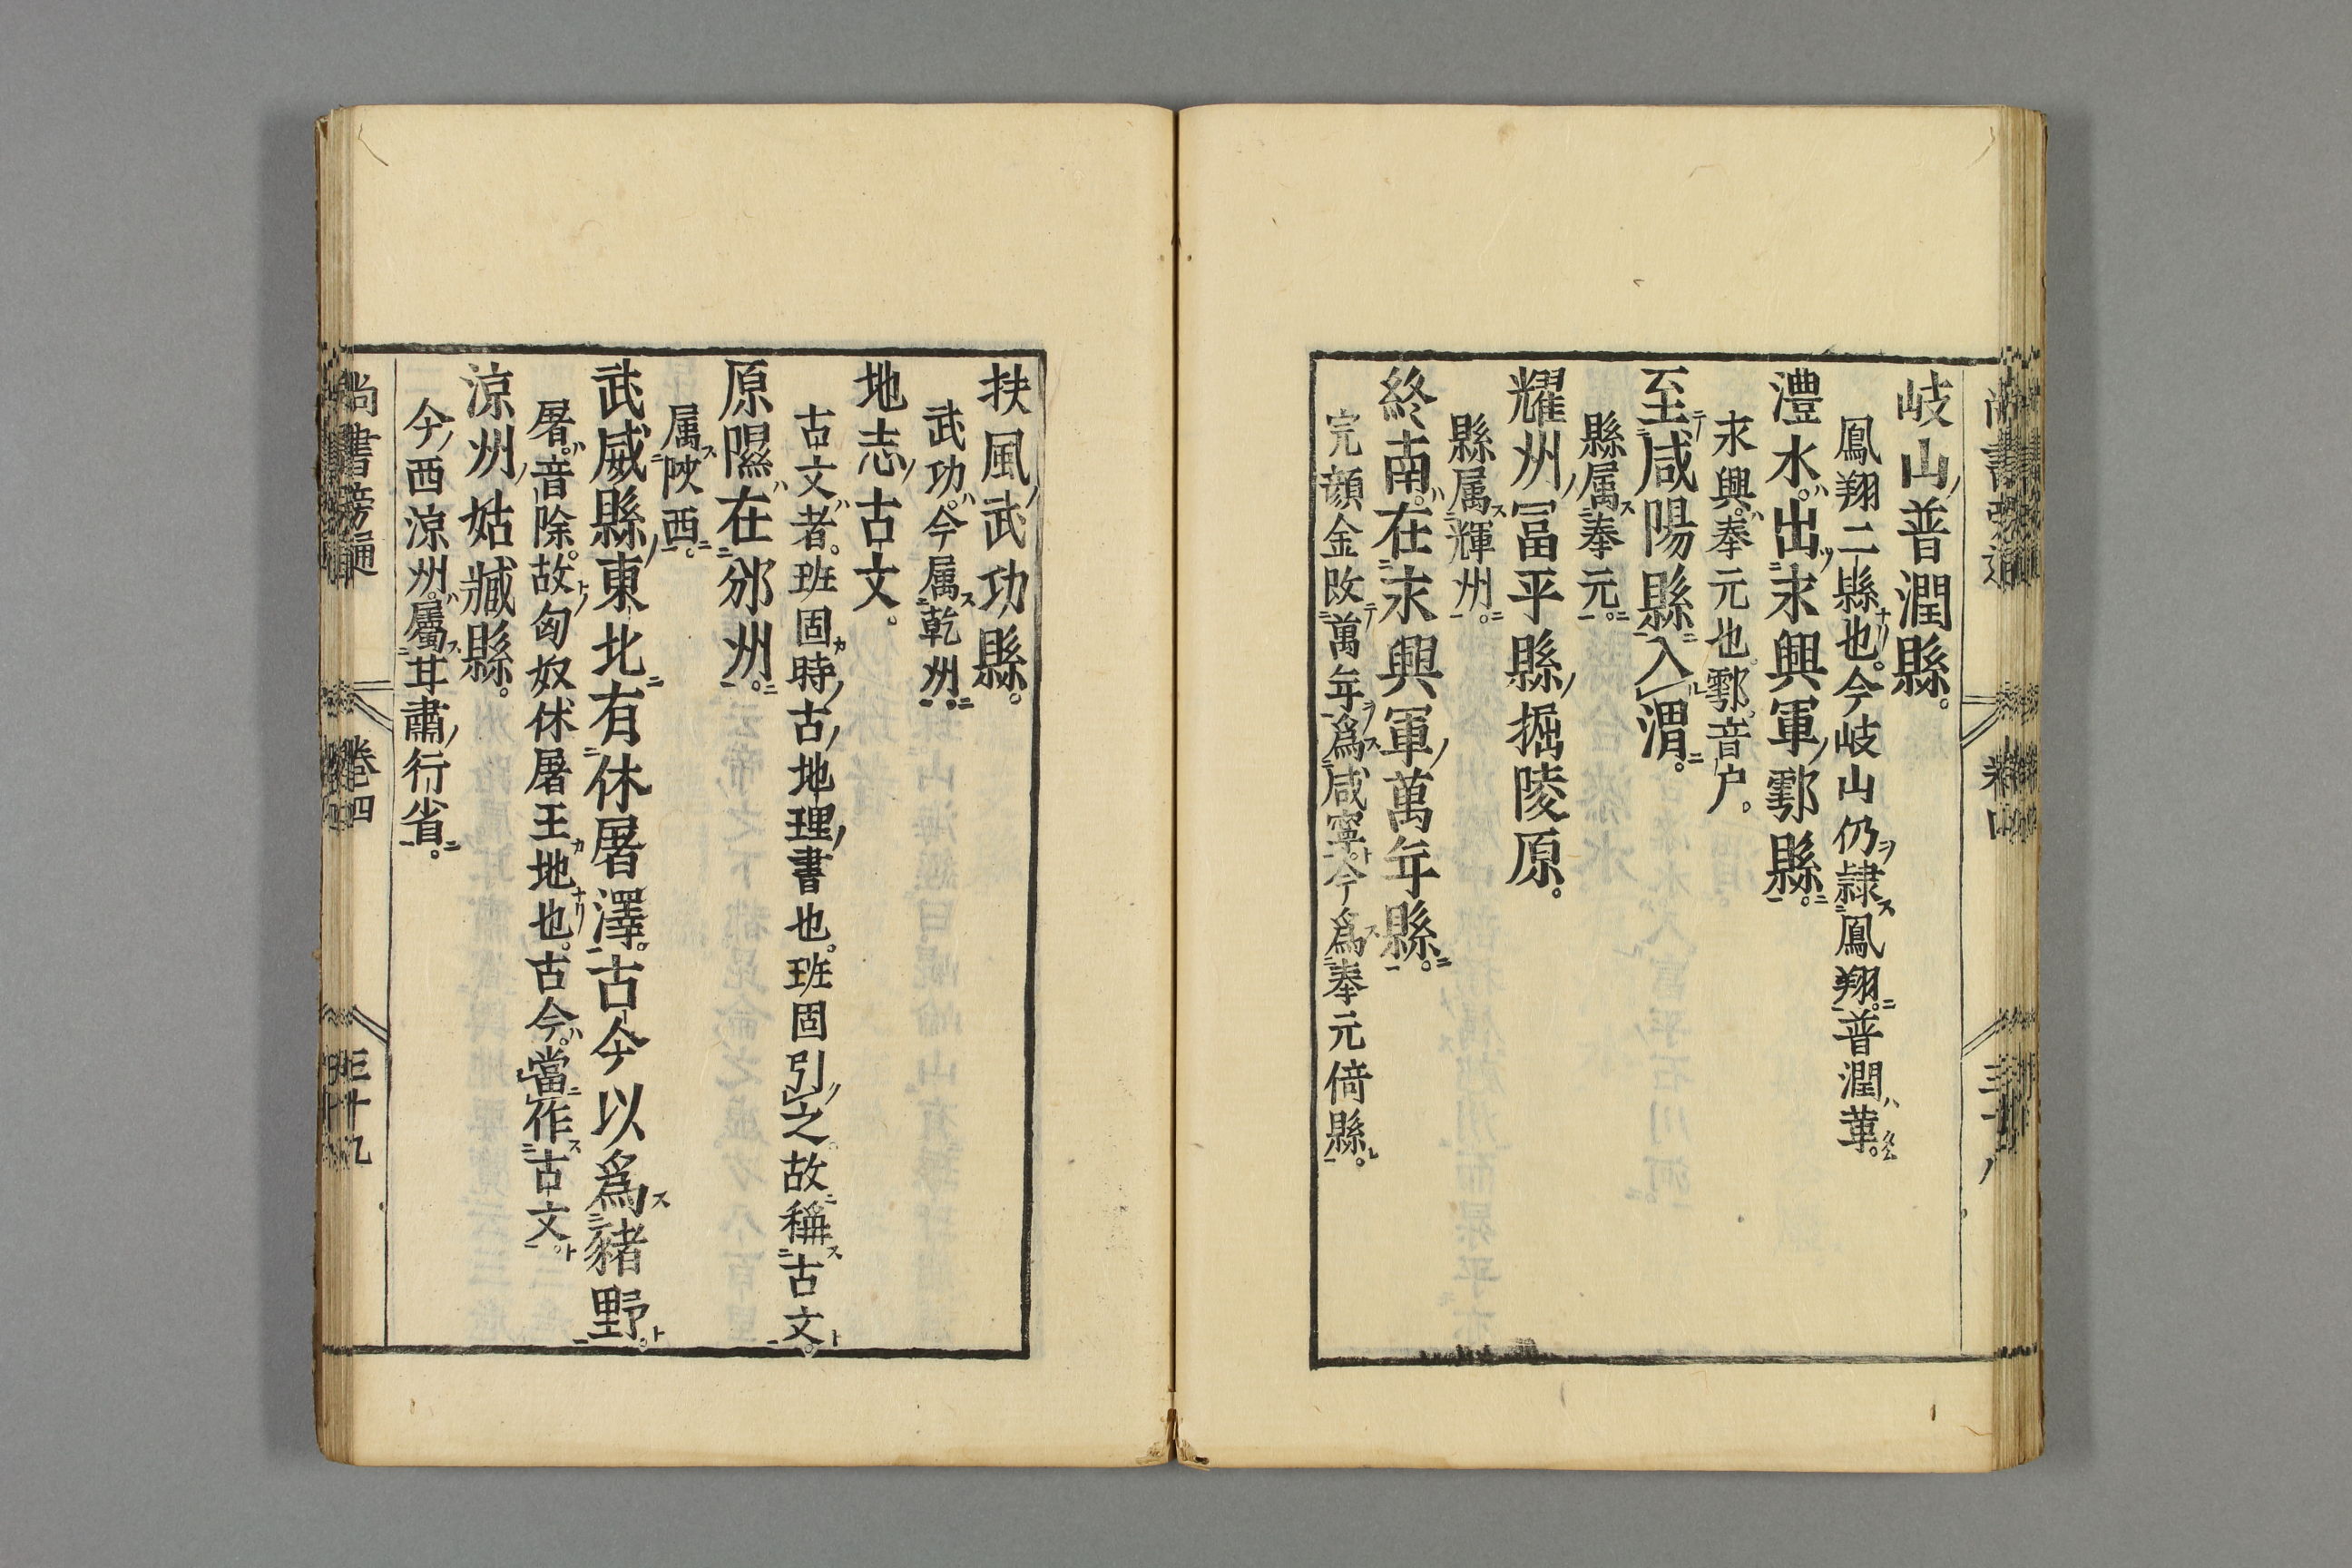 岐山普潤縣。
鳳翔二縣也。今岐山仍隷鳳翔。普潤革。
澧水。出永興軍鄠縣。
永興。奉元也。鄠。音户。
至咸陽縣入渭。
縣属奉元。
耀州冨平縣掘陵原。
縣属輝州。
終南。在永興軍萬年縣。
完顔金改萬年爲咸寧。今爲奉元倚縣。
扶風武功縣。
武功。今属乾州。
地志古文。
古文者。班固時古地理書也。班固引之故稱古文。
原隰在邠州。
属陜西。
武威縣東北有休屠澤。古今以爲豬野。
屠。音除。故匈奴休屠王地也。古今。當作古文。
涼州姑臧縣。
今西涼州。屬甘肅行省。
尚書旁通 卷四 三十九